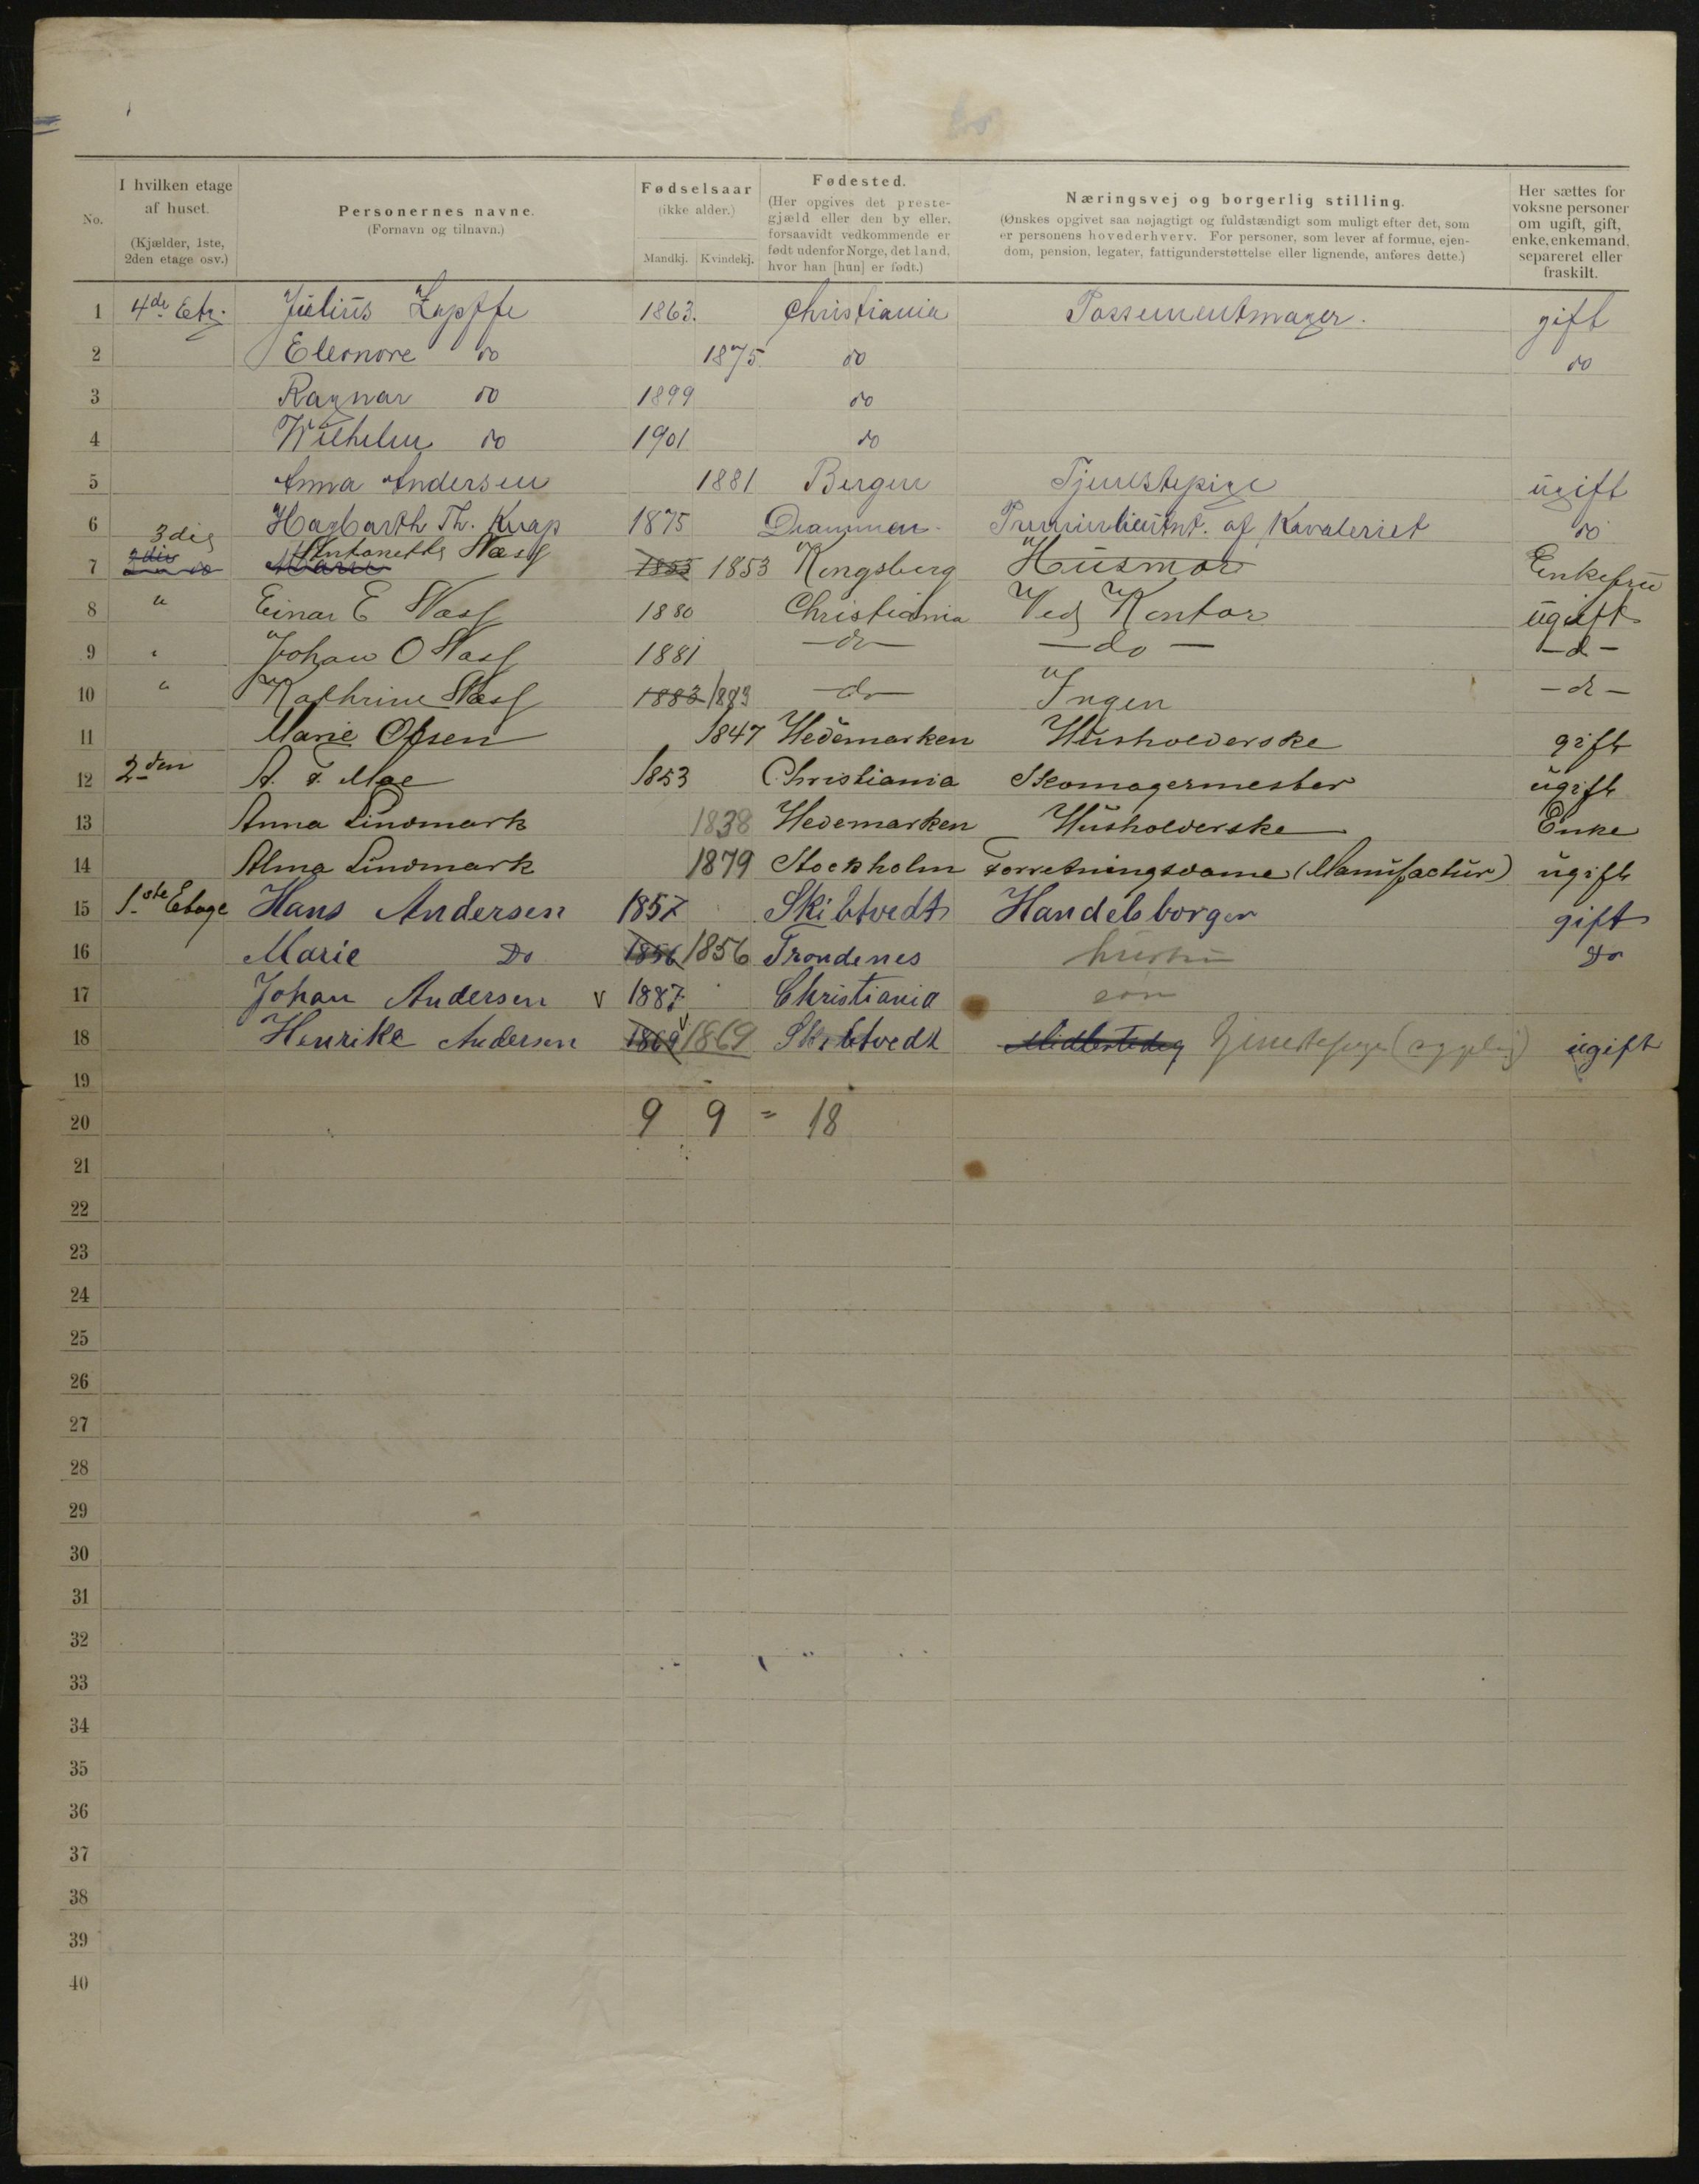 No.
I hvilken etage af huset. (Kjælder, 1ste, 2den etage osv.)
Personernes navne. (Fornavn og tilnavn.)
Fødselsaar (ikke alder.) Mandkj. Kvindekj.
Fødested. (Her opgives det prestegjæld eller den by eller, forsaavidt vedkommende er født udenfor Norge, det land, hvor han [hun] er født.)
Næringsvej og borgerlig stilling. (Ønskes opgivet saa nøjagtigt og fuldstændigt som muligt efter det, som er personens hovederhverv. For personer, som lever af formue, ejendom, pension, legater, fattigunderstøttelse eller lignende, anføres dette.)
Her sættes for voksne personer om ugift, gift, enke, enkemand, separeret eller fraskilt.
1 4de Etg. Julius Zapffe 1863. Christiania Possementmager. gift
2 Eleonore do 1875 do do
3 Ragnar do 1899 do
4 Wilhelm do 1901 do
5 Anna Andersen 1881 Bergen Tjenestepige ugift
6 Hagbarth Th. Knap 1875 Drammen Premierlieutnt. af Kavaleriet do
7 3die Antonette Næss 1853 1853 Kongsberg Husmor Enkefru
8 " Einar E Næss 1880 Christiania Ved Kontor ugift
9 " Johan O Næss 1881 - do - - do - - d -
10 " Kathrine Næss 1883 1883 - do - Ingen - d -
11 Marie Olsen 1847 Hedemarken Husholderske gift
12 2den A. F. Moe 1853 Christiania Skomagermester ugift
13 Anna Lindmark 1838 Hedemarken Husholderske Enke
14 Alma Lindmark 1879 Stockholm Forretningsdame (Manufactur) ugift
15 1ste Etage Hans Andersen 1857 Skibtvedt Handelsborger gift
16 Marie Do 1856 1856 Trondenes hustru Do
17 Johan Andersen v 1887 Christiania søn
18 Henrike Andersen 1869 1869 Skibtvedt Midlertidig Tjenestepige ugift
19
20 9 9 = 18
21
22
23
24
25
26
27
28
29
30
31
32
33
34
35
36
37
38
39
40